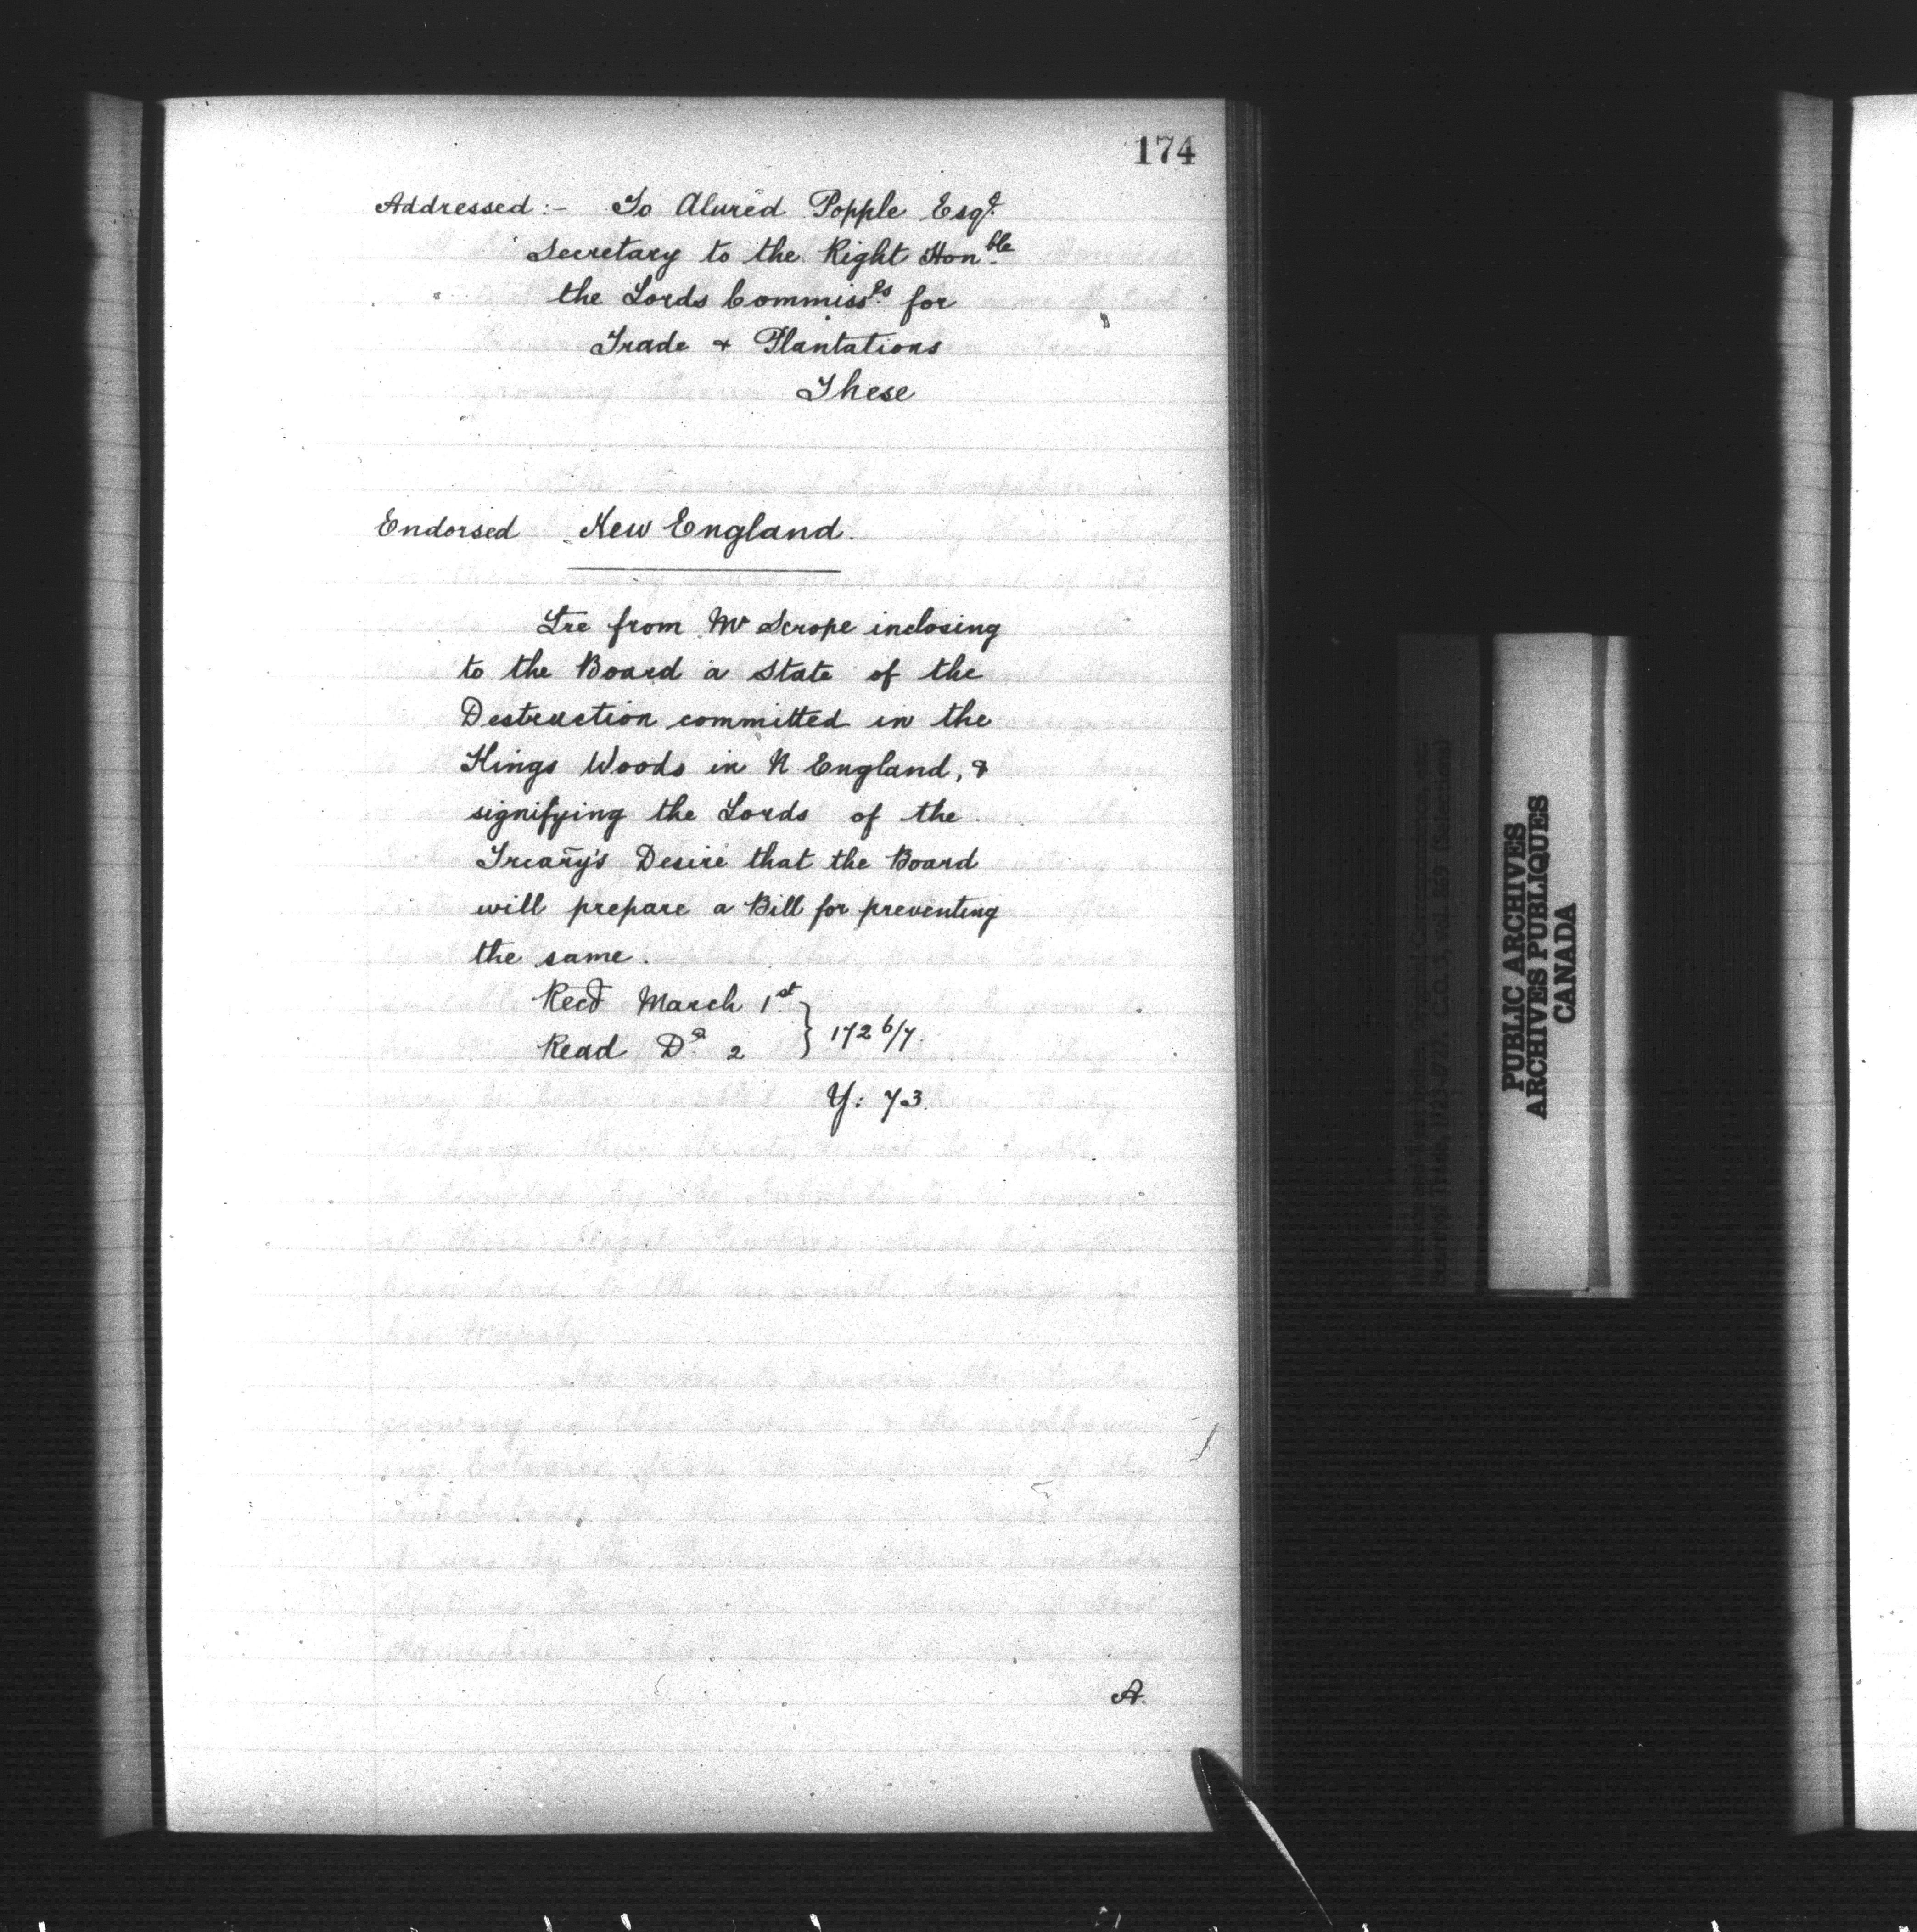 174
Addressed :- To Alured Popple Esqr.
Secretary to the Right Honble
the Lords Commissrs for
Trade & Plantations
These
Endorsed New England.
Lre from Mr Scrope inclosing
to the Board a State of the
Destruction committed in the
Kings Woods in N England, &
signifying the Lords of the
Treary's Desire that the Board
will prepare a Bill for preventing
the same.
Recd March 1st
Read Do 2 } 1726/7.
Y: 73.
A.
America and West Indies, Original Correspondence, etc.,
Board of Trade, 1723-1727. C.O. 5, vol. 869 (Selections)
PUBLIC ARCHIVES
ARCHIVES PUBLIQUES
CANADA